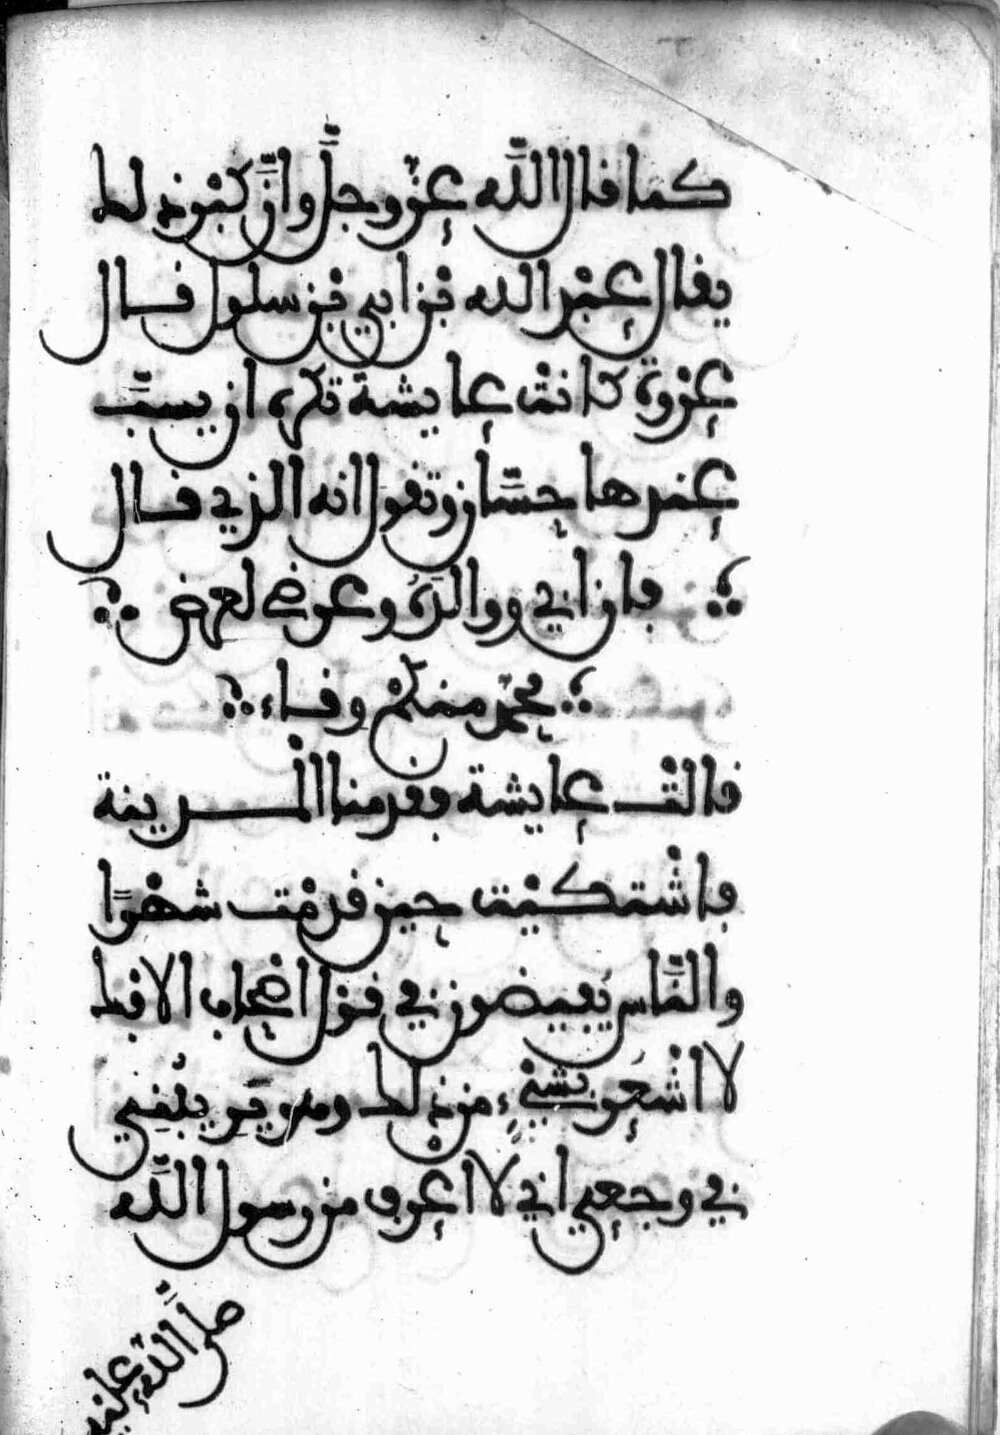 كما قال الله عز وجل وان كبر ذلك
يقال عبد الله بن ابي بن سلول قال
عروة كانت عايشة تكره ان يسب
عندها حسان وتقول انه الذي قال
فان ابي ووالده وعرضي لعرض
محمد منكم وقاء
قالت عايشة فقدمنا المدينة
فاشتكيت حين قدمت شهرا
والناس يفيضون في قول اصحاب الافك
لا اشعر بشيء من ذلك وهو يريبني
في وجعي اني لا اعرف من رسول الله
صلى الله عليه